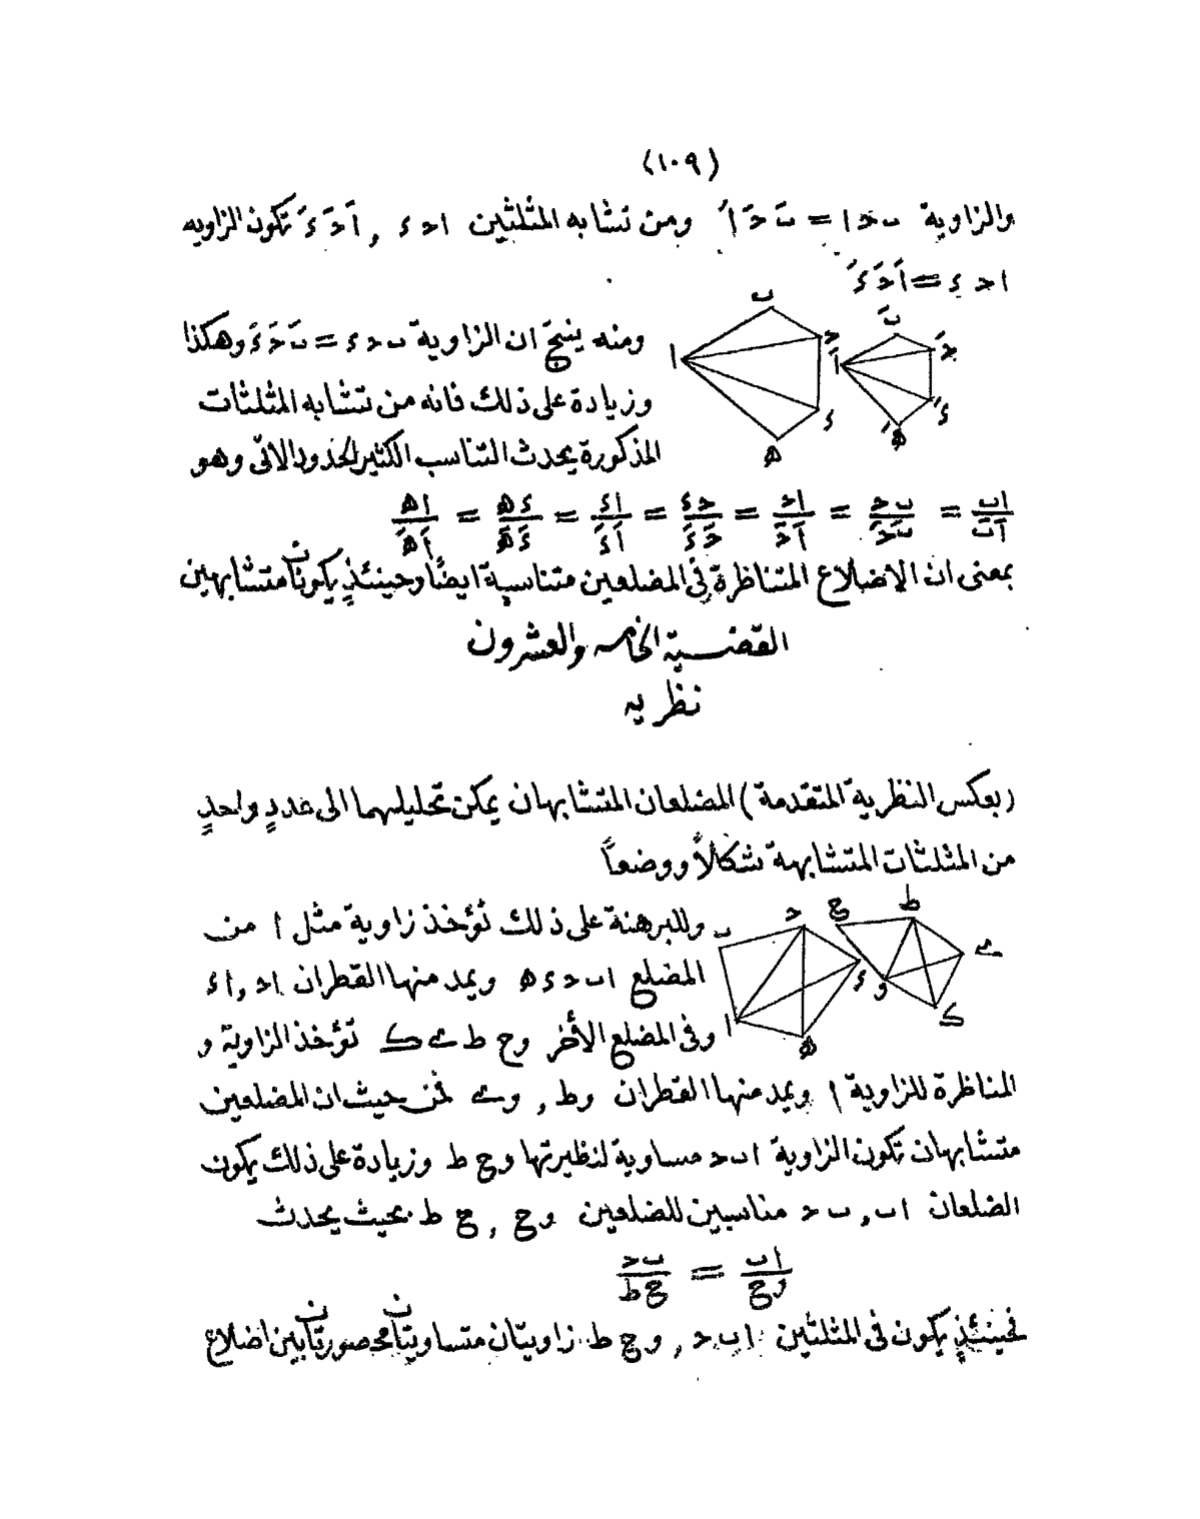 (١٠٩)
والزاوية ٮحا = ٮَحَاَ ومن تشابه المثلثين احء , اَحَءَ تكون الزاويه
احء = اَحَءَ
ب
بَ
ا
ح
اَ
حَ
ء
ءَ
ه
هَ
ومنه ينتج ان الزاوية ٮحء = ٮَحَءَ وهكذا
وزيادة على ذلك فانه من تشابه المثلثات
المذكورة يحدث التناسب الكثير الحدود الاتى وهو
اب/اَبَ = بح/بَحَ = اح/اَحَ = حء/حَءَ = اء/اَءَ = ءه/ءَهَ = اه/اَهَ
بمعنى ان الاضلاع المتناظرة فى المضلعين متناسبة ايضًا وحينئذٍ يكونان متشابهين
القضية الخامسه والعشرون
نظريه
(بعكس النظرية المتقدمة) المضلعان المتشابهان يمكن تحليلهما الى عددٍ واحدٍ
من المثلثات المتشابهة شكلاً ووضعاً
ب
ح
ج
ط
ے
ء
و
ك
ا
ه
وللبرهنة على ذلك تؤخذ زاوية مثل ا من
المضلع ابحءه ويمد منها القطران اح , اء
وفى المضلع الأخر وج طے ك تؤخذ الزاوية و
المناظرة للزاوية ا ويمد منها القطران وط , وے فمن حيث ان المضلعين
متشابهان تكون الزاوية ابح مساوية لنظيرتها وج ط وزيادة على ذلك يكون
الضلعان اب , بح مناسبين للضلعين وج , ج ط بحيث يحدث
اب/وج = بح/جط
فحينئذٍ يكون فى المثلثين ابح , وج ط زاويتان متساويتان محصورتان بين اضلاع